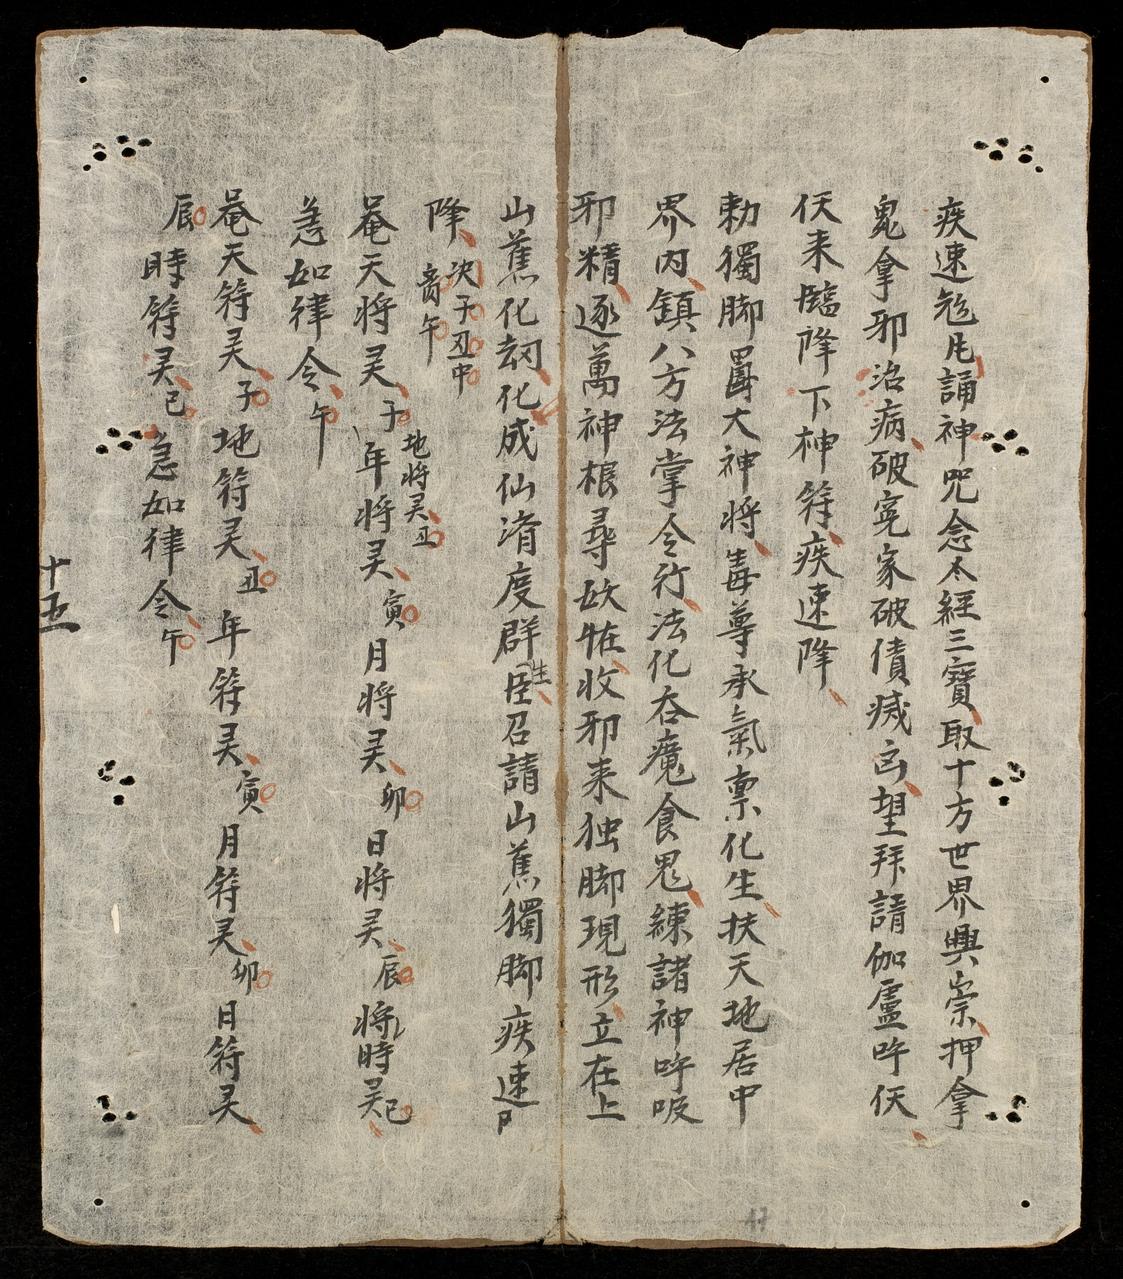 疾速
誦神咒念太經三寶取十方世界興崇押拿
鬼拿邪治病破冤家破債滅凶望拜請伽廬吽
来臨降下神符疾速降
勅獨脚大神將毒尊承氣稟化生扶天地居中
界内鎮八方法掌令行法化吞魔食鬼練諸神吽吸
邪精逐萬神根尋妖怪收邪来独脚現形立在上
山蕉化劫化成仙濟度群臣生召請山蕉獨脚疾速
降決子丑中
午
奄天将灵子地将灵丑年将灵寅月将灵卯日将灵辰将時灵巳
急如律令午
奄天符灵子地符灵丑年符灵寅月符灵卯日符灵
辰時符灵巳急如律令午
十五